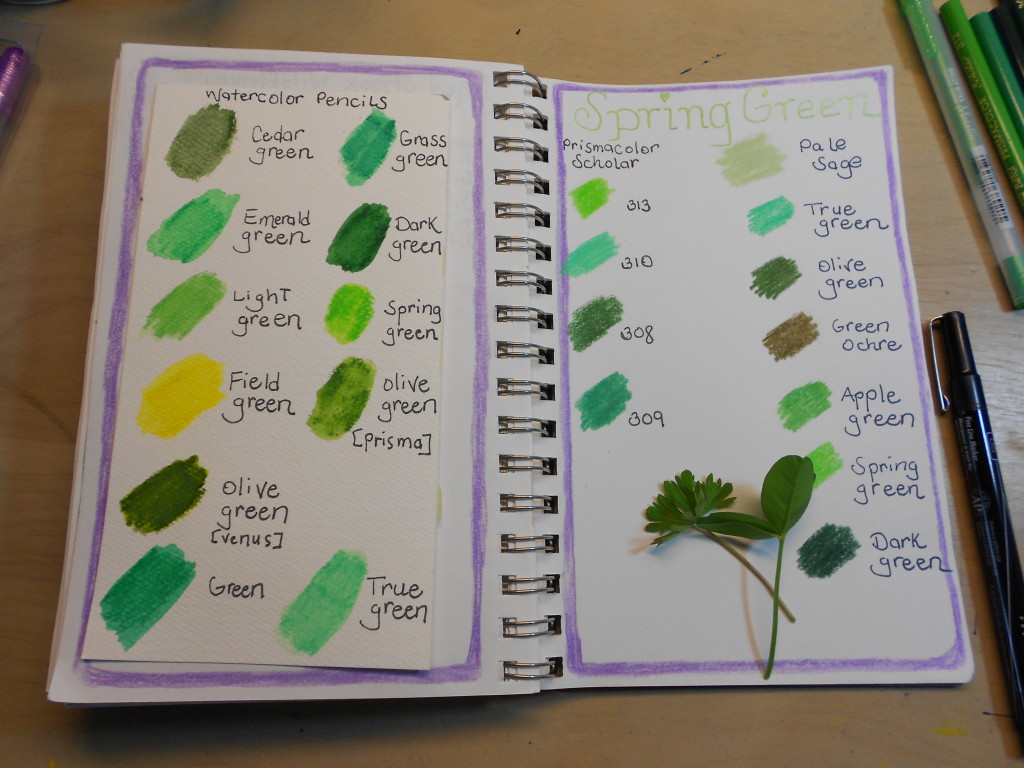 Watercolor Pencils
Cedar
green
Grass
green
Emerald
green
Dark
green
Light
green
Spring
green
Field
green
olive
green
[prisma]
Olive
green
[venus]
Green
True
green
Spring Green
Prismacolor
Scholar
313
310
308
309
Pale
Sage
True
green
Olive
green
Green
Ochre
Apple
green
Spring
green
Dark
green